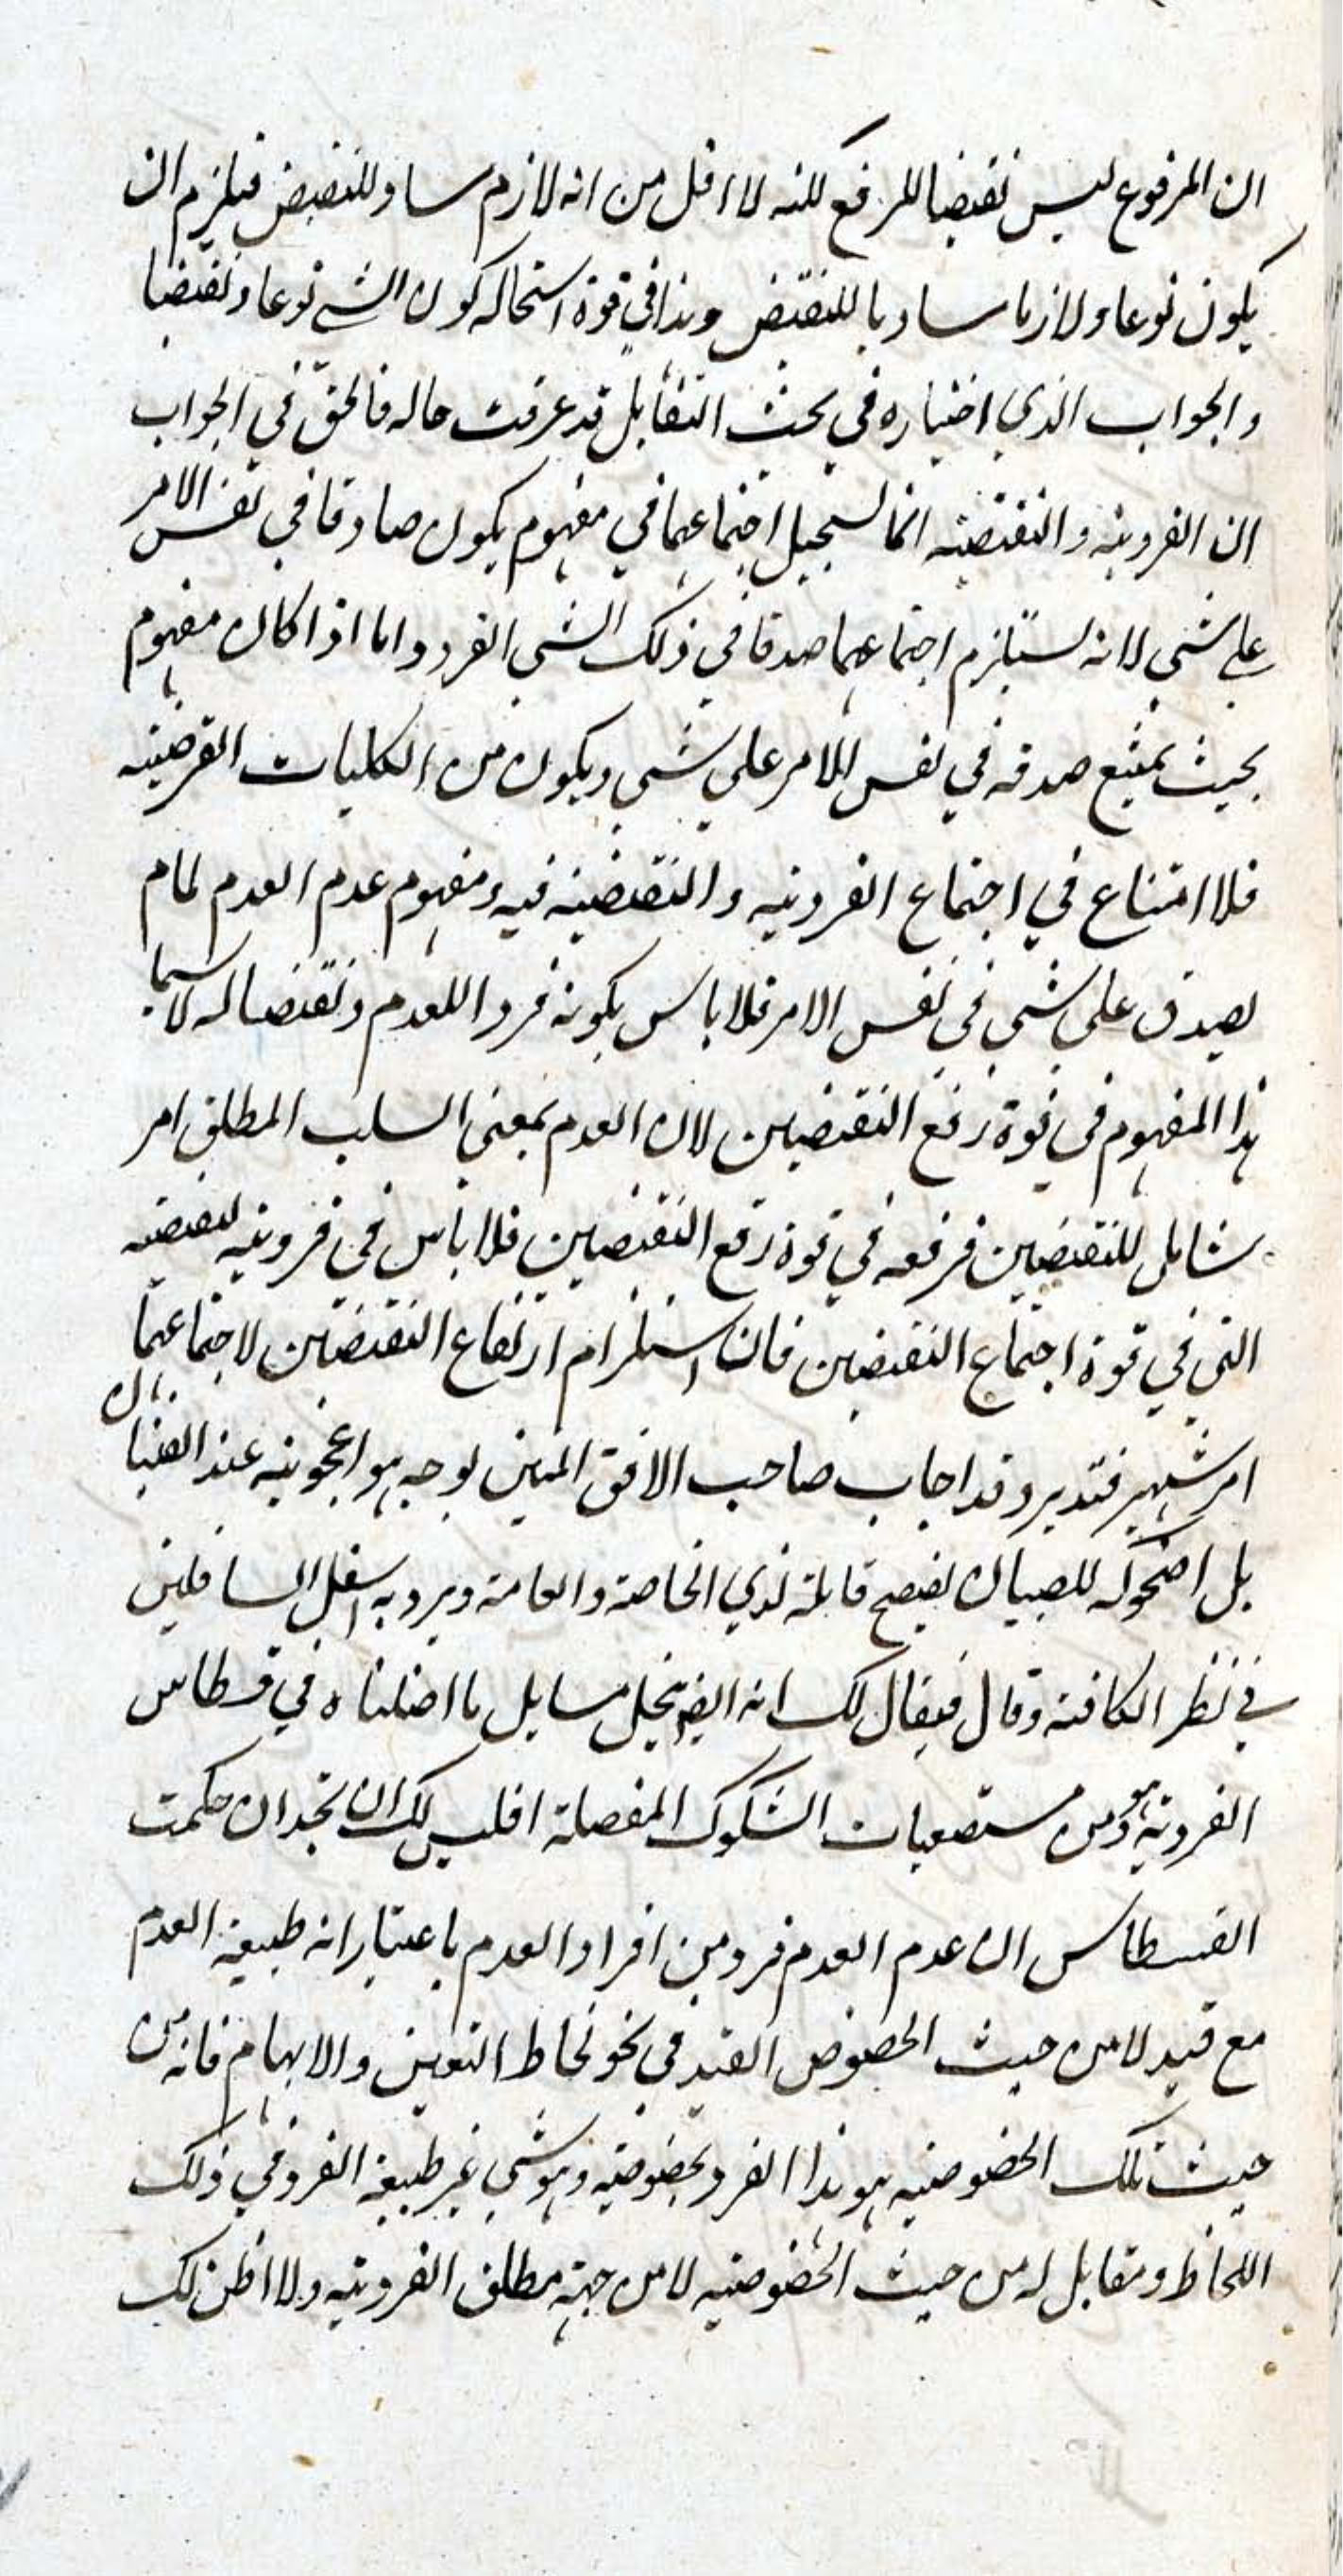 ان المرفوع ليس نقيضا للرفع لكنه لا اقل من انه لازم مساو للنقيض فيلزم ان
يكون نوعا ولازما مساويا للنقيض وهذا في قوة استحاله كون الشي نوعا ونقيضا
والجواب الذي اختياره في بحث التقابل قد عرفت حاله فالحق في الجواب
ان الفرديه والنقيضيه انما يستحيل اجتماعهما في مفهوم يكون صادقا في نفس الامر
على شي لانه يستلزم اجتماعهما صدقا في ذلك الشي الفرد واما اذا كان مفهوم
بحيث يمتنع صدقه في نفس الامر على شي ويكون من الكليات الفرضيه
فلا امتناع في اجتماع الفرديه والنقيضيه فيه ومفهوم عدم العدم لما لم
يصدق على شي في نفس الامر فلا باس بكونه فردا للعدم ونقيضا له لا سيما
هذا المفهوم في قوة رفع النقيضين لان العدم بمعنى السلب المطلق امر
شامل للنقيضين فرفعه في قوة رفع النقيضين فلا باس في فرديه لنقيضه
التي في قوة اجتماع النقيضين فان استلزام ارتفاع النقيضين لاجتماعهما
امر شهير فتدبر وقد اجاب صاحب الافق المبين بوجه هو اعجوبه عند الصبيان
بل اضحوكه للصبيان يفضح قائله لدي الخاصة والعامة ويرد به اسفل السافلين
في نظر الكافه وقال فيقال لك انه ايض ينحل مسايل ما اصلناه في قسطاس
الفردية وهو من مستصعبات الشكوك المعضلة افليس لك ان تجد ان حكمت
القسطاس ان عدم العدم فرد من افراد العدم باعتبار انه طبيعة العدم
مع قيد لا من حيث الخصوص القيد في نحو لحاظ التعين والابهام فانه من
حيث تلك الخصوصيه هو هذا الفرد بخصوصيه وهو شي غير طبيعة الفرد في ذلك
اللحاظ ومقابل له من حيث الخصوصيه لا من جهة مطلق الفرديه ولا اظن لك